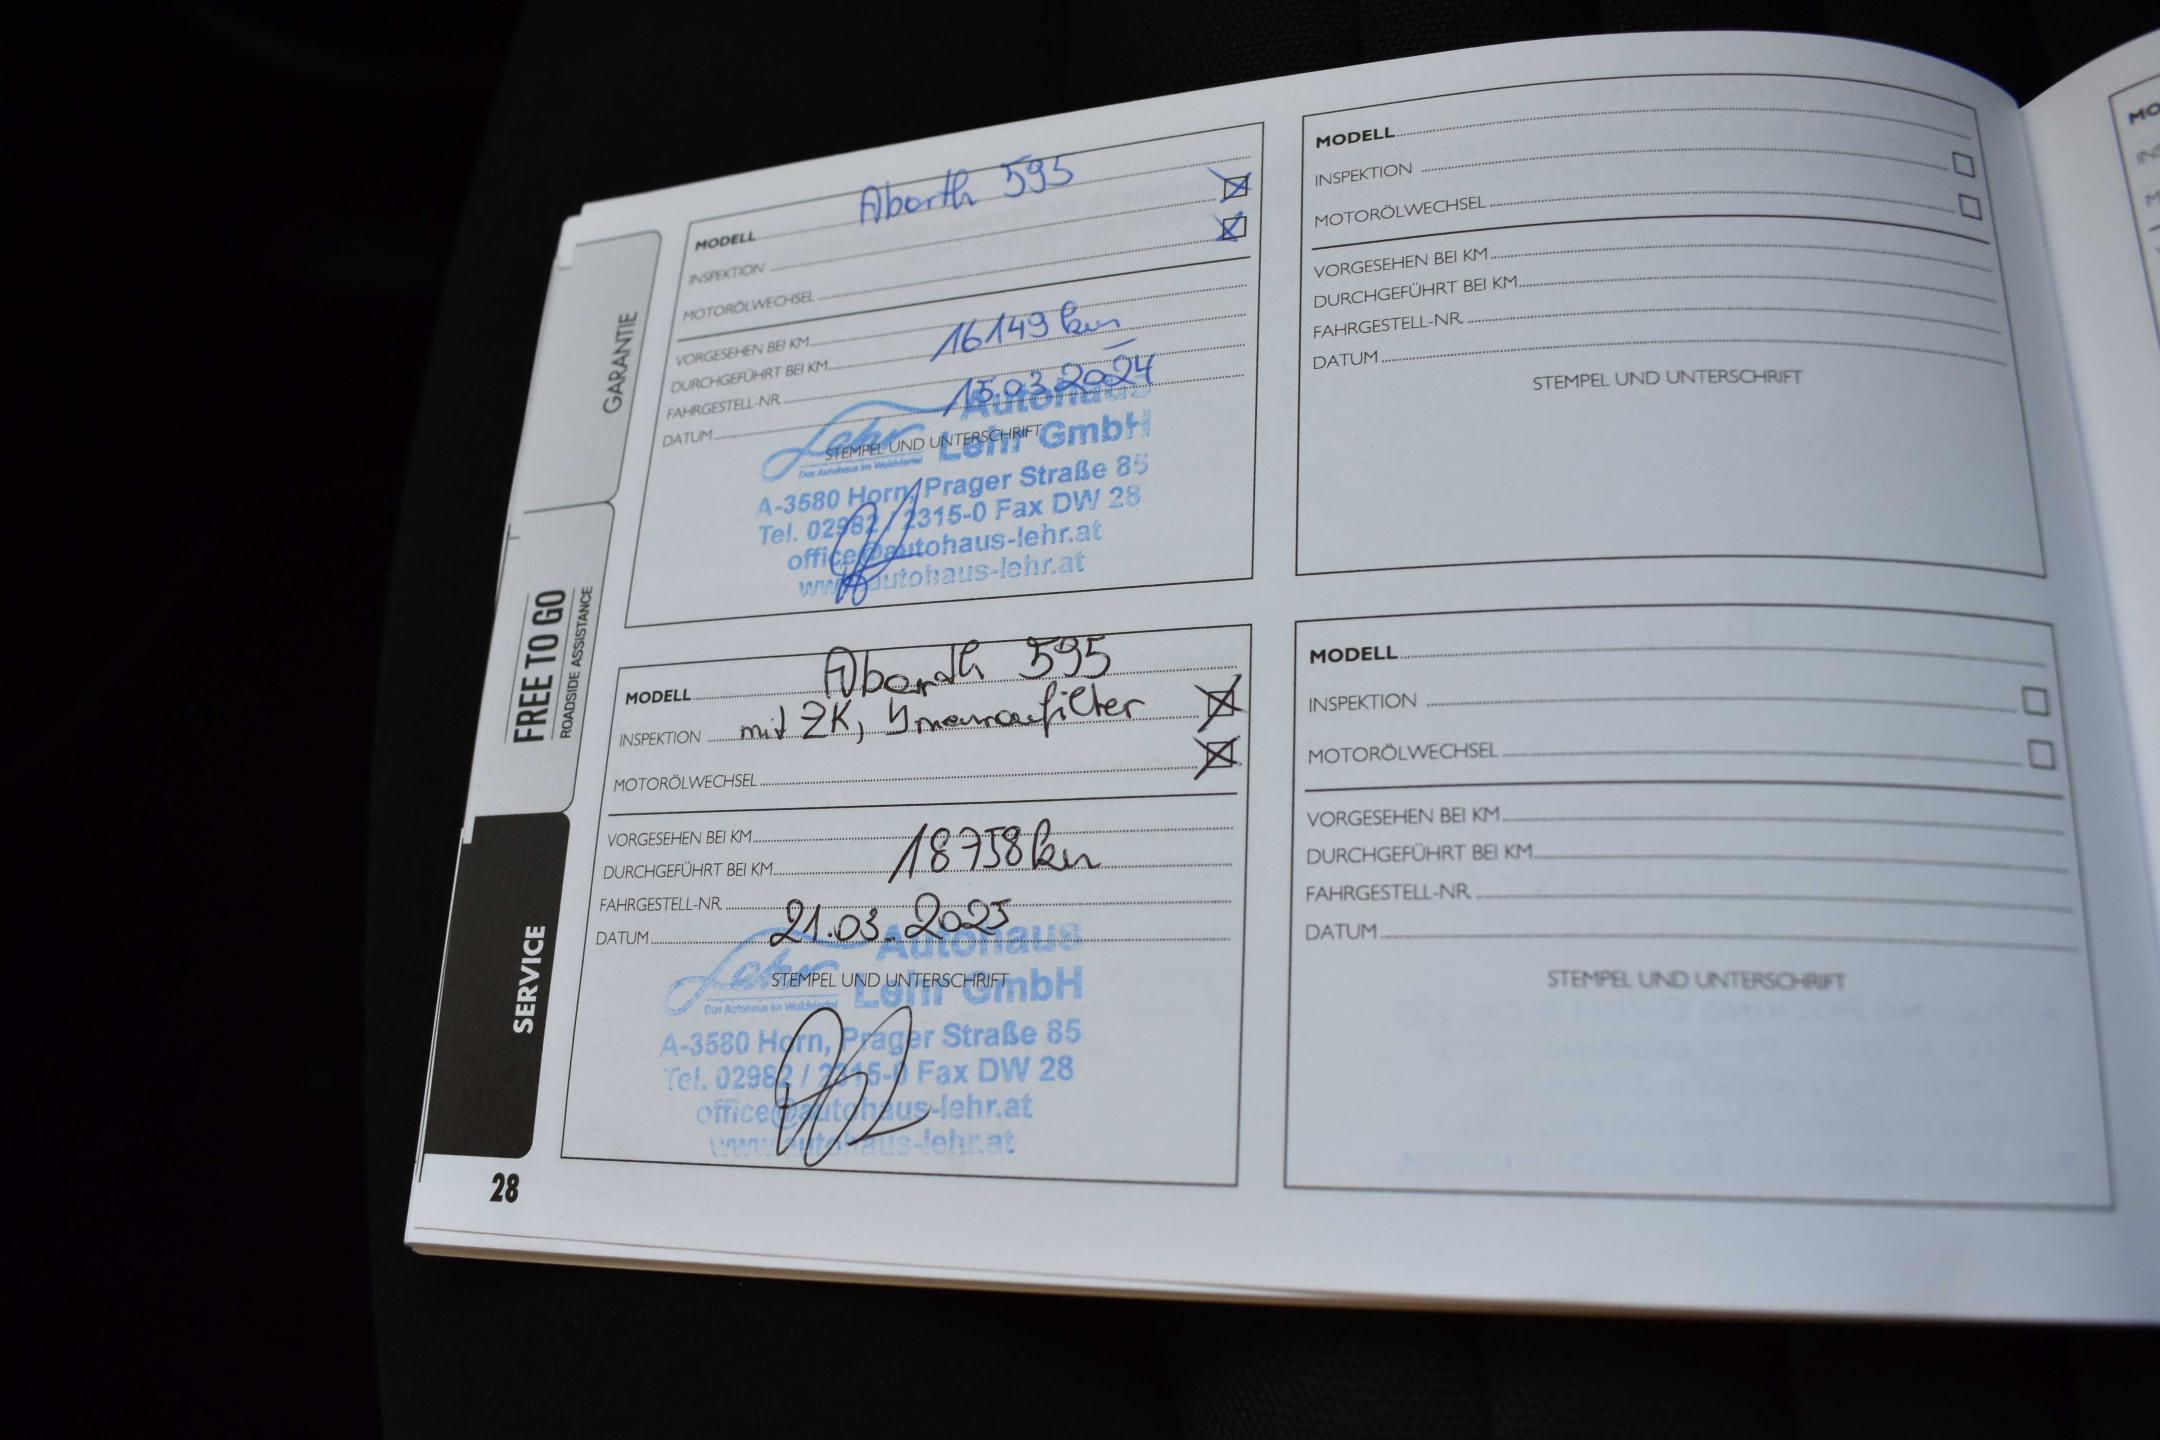 GARANTIE
FREE TO GO
ROADSIDE ASSISTANCE
SERVICE
MODELL Abarth 595
INSPEKTION
MOTORÖLWECHSEL
VORGESEHEN BEI KM
DURCHGEFÜHRT BEI KM 16149 km
FAHRGESTELL-NR.
DATUM 15.03.2024
STEMPEL UND UNTERSCHRIFT
Lehr
Das Autohaus im Waldviertel
Autohaus
Lehr GmbH
A-3580 Horn, Prager Straße 85
Tel. 02982 / 2315-0 Fax DW 28
office@autohaus-lehr.at
www.autohaus-lehr.at
MODELL Abarth 595
INSPEKTION mit ZK, Innenraumfilter
MOTORÖLWECHSEL
VORGESEHEN BEI KM
DURCHGEFÜHRT BEI KM 18758 km
FAHRGESTELL-NR.
DATUM 21.03.2025
STEMPEL UND UNTERSCHRIFT
Lehr
Das Autohaus im Waldviertel
Autohaus
Lehr GmbH
A-3580 Horn, Prager Straße 85
Tel. 02982 / 2315-0 Fax DW 28
office@autohaus-lehr.at
www.autohaus-lehr.at
28
MODELL
INSPEKTION
MOTORÖLWECHSEL
VORGESEHEN BEI KM
DURCHGEFÜHRT BEI KM
FAHRGESTELL-NR.
DATUM
STEMPEL UND UNTERSCHRIFT
MODELL
INSPEKTION
MOTORÖLWECHSEL
VORGESEHEN BEI KM
DURCHGEFÜHRT BEI KM
FAHRGESTELL-NR.
DATUM
STEMPEL UND UNTERSCHRIFT